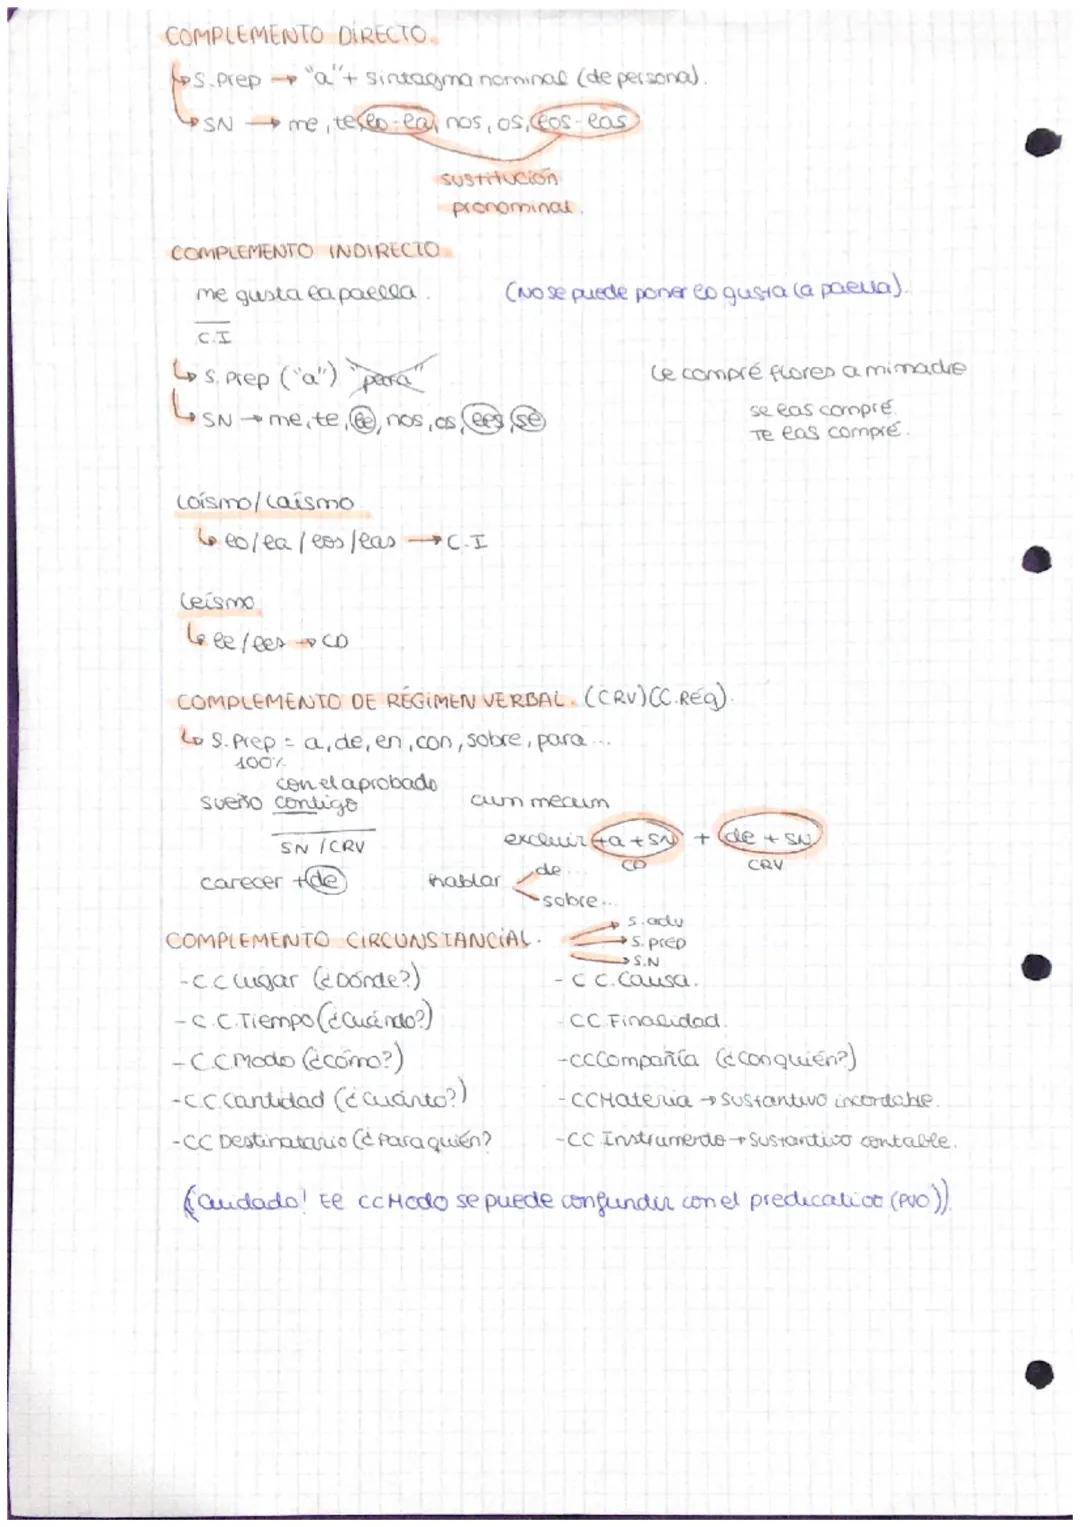 COMPLEMENTO DIRECTO.
↳ S.Prep → "a" + sintagma nominal (de persona).
↳ SN → me, te, lo-la, nos, os, los-las
sustitución
pronominal.
COMPLEMENTO INDIRECTO
me gusta la paella.
(No se puede poner lo gusta la paella).
C.I
↳ S. Prep ("a") "para"
↳ SN → me, te, le, nos, os, les, se
Le compré flores a mi madre
se las compré.
Te las compré.
Loísmo/Laísmo
↳ lo/la/los/las → C.I
Leísmo
↳ le/les → CD
COMPLEMENTO DE RÉGIMEN VERBAL. (CRV)(C.Reg).
↳ S.Prep = a, de, en, con, sobre, para...
100%
con el aprobado
sueño contigo
cum mecum
SN / CRV
excluir +a + SN + de + SN
CD CRV
carecer + de
hablar de...
sobre...
COMPLEMENTO CIRCUNSTANCIAL.
→ S.adv
→ S.prep
→ S.N
- C.C Lugar (¿Dónde?)
- C.C. Causa.
- C.C.Tiempo (¿Cuándo?)
- CC Finalidad.
- C.C Modo (¿cómo?)
- CC Compañía (¿Con quién?)
- C.C. Cantidad (¿Cuánto?)
- CC Materia → Sustantivo incontable.
- CC Destinatario (¿Para quién?
- CC Instrumento → Sustantivo contable.
(¡Cuidado! El CC Modo se puede confundir con el predicativo (PVO)).